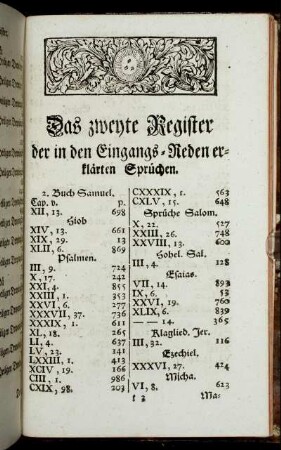 Das zweyte Register
der in den Eingangs-Reden er-
klärten Sprüchen.
2. Buch Samuel.
Cap. v. p.
XII, 13. 698
Hiob
XIV, 13. 661
XIX, 29. 13
XLII, 6. 869
Psalmen.
III, 9. 724
X, 17. 242
XXI, 4. 855
XXIII, 1. 353
XXVI, 6. 277
XXXVII, 37. 736
XXXIX, 1. 611
XL, 18. 265
LI, 4. 637
LV, 23. 141
LXXIII, 1. 413
XCIV, 19. 166
CIII, 1. 986
CXIX, 98. 203
CXXXIX, 1. 563
CXLV, 15. 648
Sprüche Salom.
X, 22. 527
XXIII, 26. 748
XXVIII, 13. 600
Hohel. Sal.
III, 4. 128
Esaias.
VII, 14. 893
IX, 6. 53
XXVI, 19. 760
XLIX, 6. 839
— — 14. 365
Klaglied. Jer.
III, 32. 116
Ezechiel.
XXXVI, 27. 424
Micha.
VI, 8. 623
t 2 Ma-